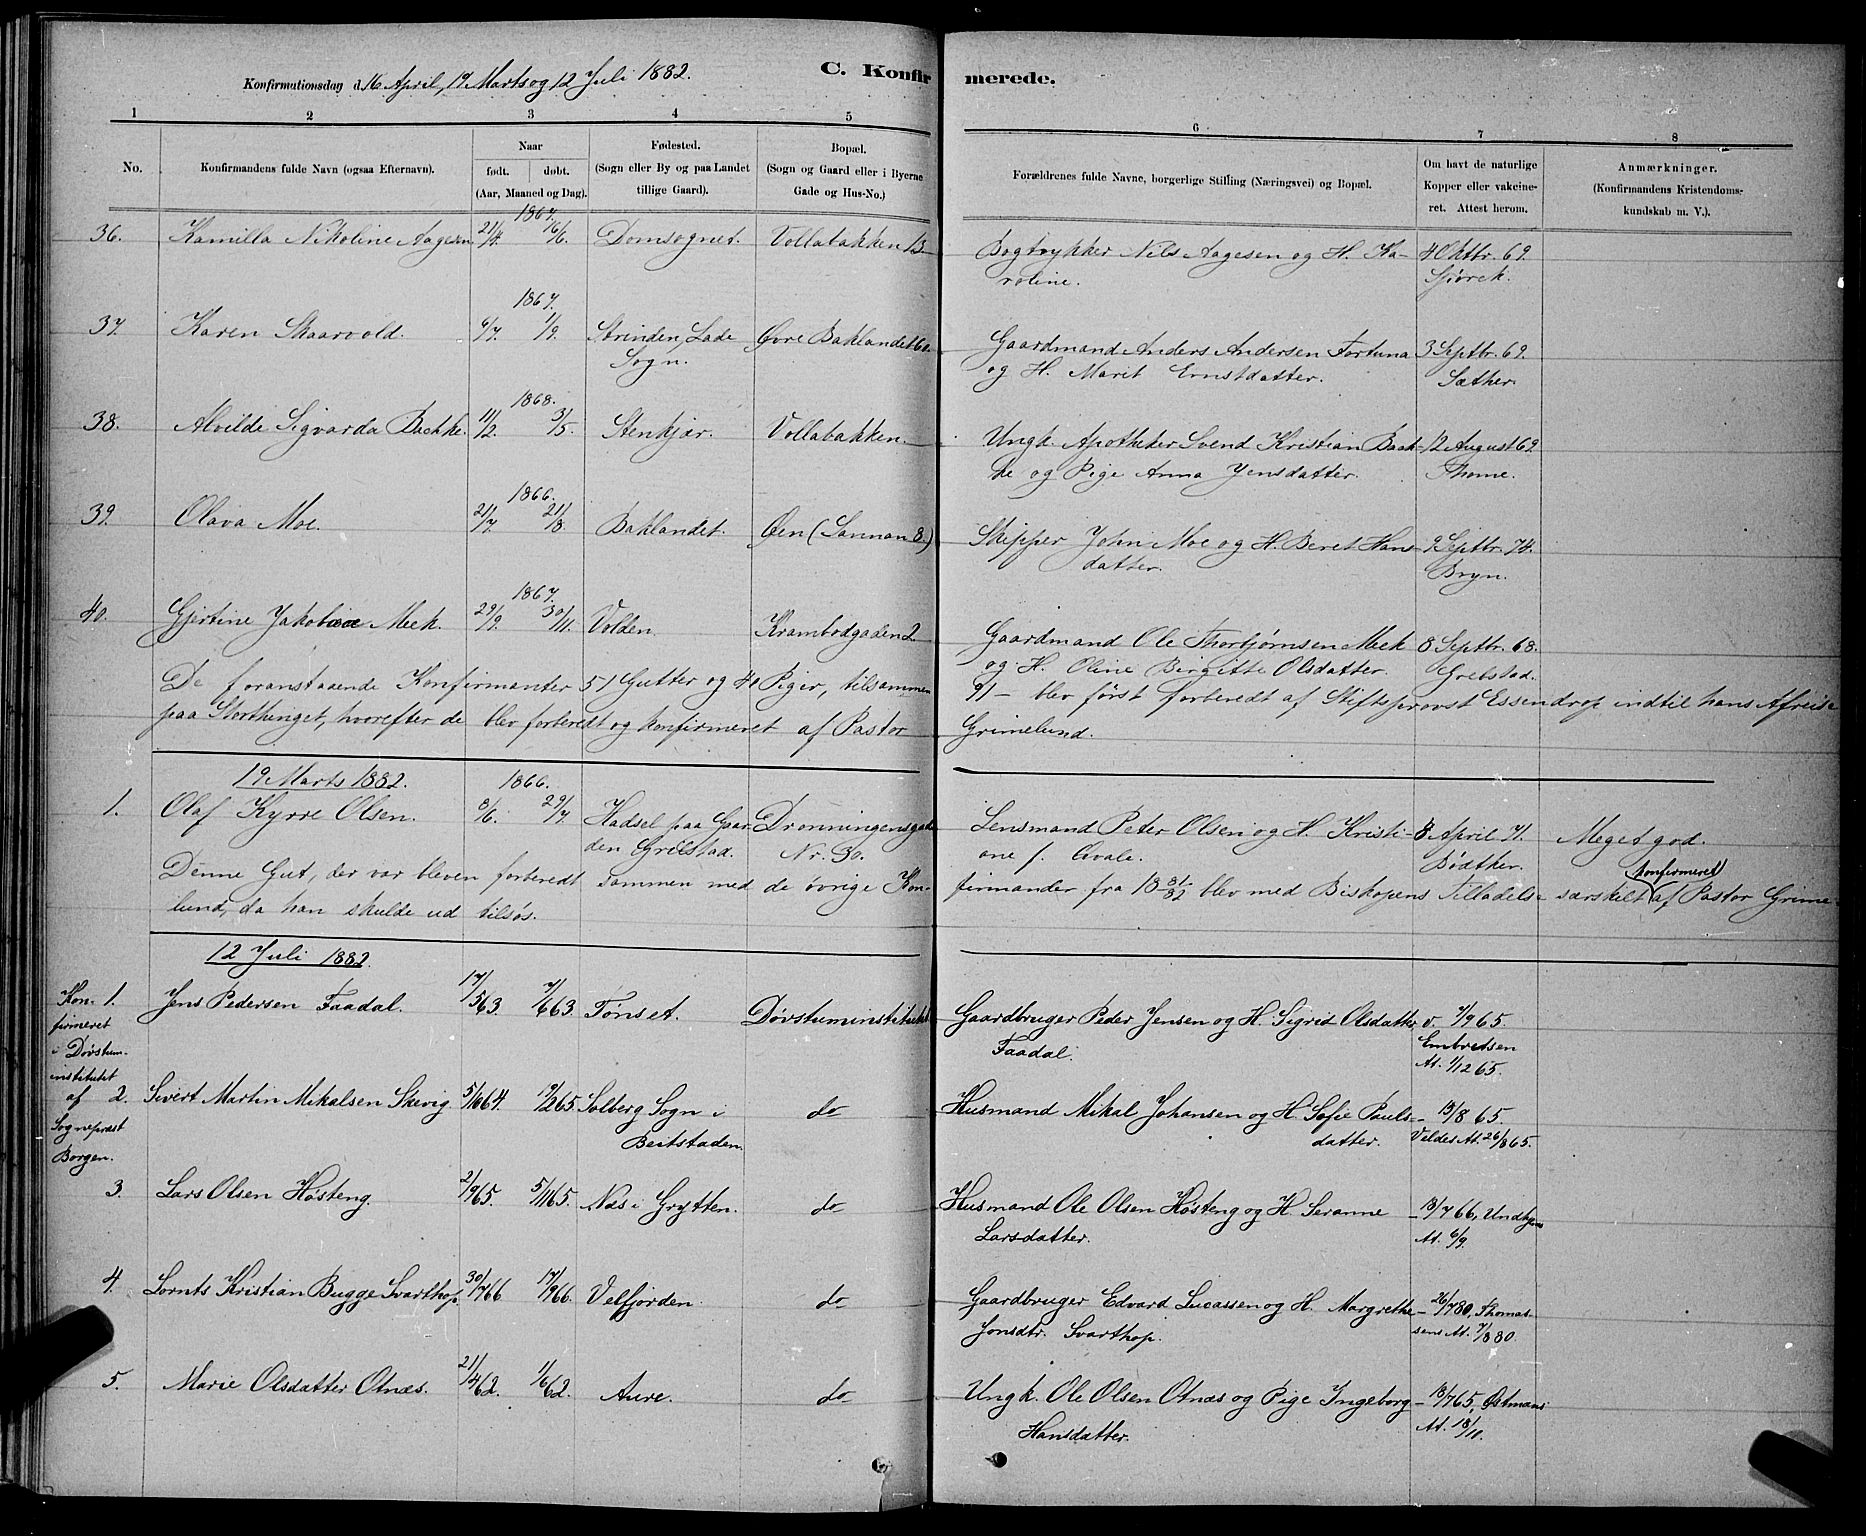 Konfirmationsdag d. 16 April, 19 Marts og 12 Juli 1882. C. Konfirmerede.
1 2 3 4 5 6 7 8
No. Konfirmandens fulde Navn (ogsaa Efternavn). Naar født. døbt. (Aar, Maaned og Dag). Fødested. (Sogn eller By og paa Landet tillige Gaard). Bopæl. (Sogn og Gaard eller i Byerne Gade og Hus-No.) Forældrenes fulde Navne, borgerlige Stilling (Næringsvei) og Bopæl. Om havt de naturlige Kopper eller vakcineret. Attest herom. Anmærkninger. (Konfirmandens Kristendomskundskab m. V.).
1867.
36. Kamilla Nikoline Aagesen 21/4. 16/6. Domsognet. Vollabakken 13 Bogtrykker Nils Aagesen og H. Ka- 4 Oktbr. 69.
roline. Gjörck.
1867.
37. Karen Skaarvold. 6/7. 1/9. Strinden, Lade Øvre Baklandet Gaardmand Anders Andersen Fortuna 3 Septbr. 69.
Sogn. og H. Marit Ernstdatter. Sæther.
1868.
38. Alvilde Sigvarda Bachke. 11/2. 3/5. Stenkjær. Vollabakken. Ungk. Apotheker Svend Kristian Bach- 12 August 69.
ke og Pige Anna Jensdatter. Thome.
1866.
39. Olava Moe. 21/7. 21/8. Baklandet. Øen (Sannan 8.) Skipper John Moe og H. Beret Hans- 9 Septbr. 74.
datter. Bryn.
1867.
40. Gjertine Jakobine Meek. 29/9. 30/11. Volden. Krambodgaden 2 Gaardmand Ole Thorbjørnsen Meek 8 Septbr. 68.
og H. Oline Birgitte Olsdatter. Grebstad.
De foranstaaende Konfirmanter 51 Gutter og 40 Piger, tilsammen 91 - blev först forberedt af Stiftsprovst Essendrop indtil hans Afreise
paa Storthinget, hvorefter de blev forberedt og konfirmeret af Pastor Grimelund.
19 Marts 1882. 1866.
1. Olaf Kyrre Olsen. 8/6. 29/7. Hadsel paa Gaar- Dronningensgade Lensmand Peter Olsen og H. Kristi- 8 April 71. Meget god.
den Grilstad. Nr. 30. ane f. Qvale. Bødtker.
Denne Gut, der var bleven forberedt sammen med de övrige Kon- firmander fra 18 81/82 blev med Biskopens Tilladelse særskilt konfirmeret af Pastor Grime-
lund, da han skulde ud tilsös.
12 Juli 1882.
Kon- 1. Jens Pedersen Faadal. 17/5 63. 7/6 63. Tønset. Døvstuminstitutet Gaardbruger Peder Jensen og H. Sigrid Olsdatter v. 7/9 65.
firmeret Faadal. Embretsen
i Døvstum- At. 1/12 65.
institutet
af 2. Sivert Martin Mikalsen Skevig 5/10 64. 19/2 65. Solberg Sogn i do Husmand Mikal Johansen og H. Sofie Pauls- - 13/8 65.
Sognepræst Beitstaden. datter. Veldes At. 26/8 65.
Borgen.
3. Lars Olsen Høsteng. 2/9 65. 5/11 65. Näs i Grytten. do Husmand Ole Olsen Høsteng og H. Seranne - 13/7 66,
Larsdatter. At. 6/9.
4. Lornts Kristian Bugge Svarthop. 30/7 66 17/9 66. Velfjorden. do Gaardbruger Edvard Lucassen og H. Margrethe - 26/7 80, Thomas-
Jonsdtr. Svarthop. sens At. 7/8 80.
5. Marie Olsdatter Otnæs. 21/4 62. 1/6 62. Aure. do Ungk. Ole Olsen Otnæs og Pige Ingeborg - 13/7 65, Østmans
Hansdatter. At. 18/10.